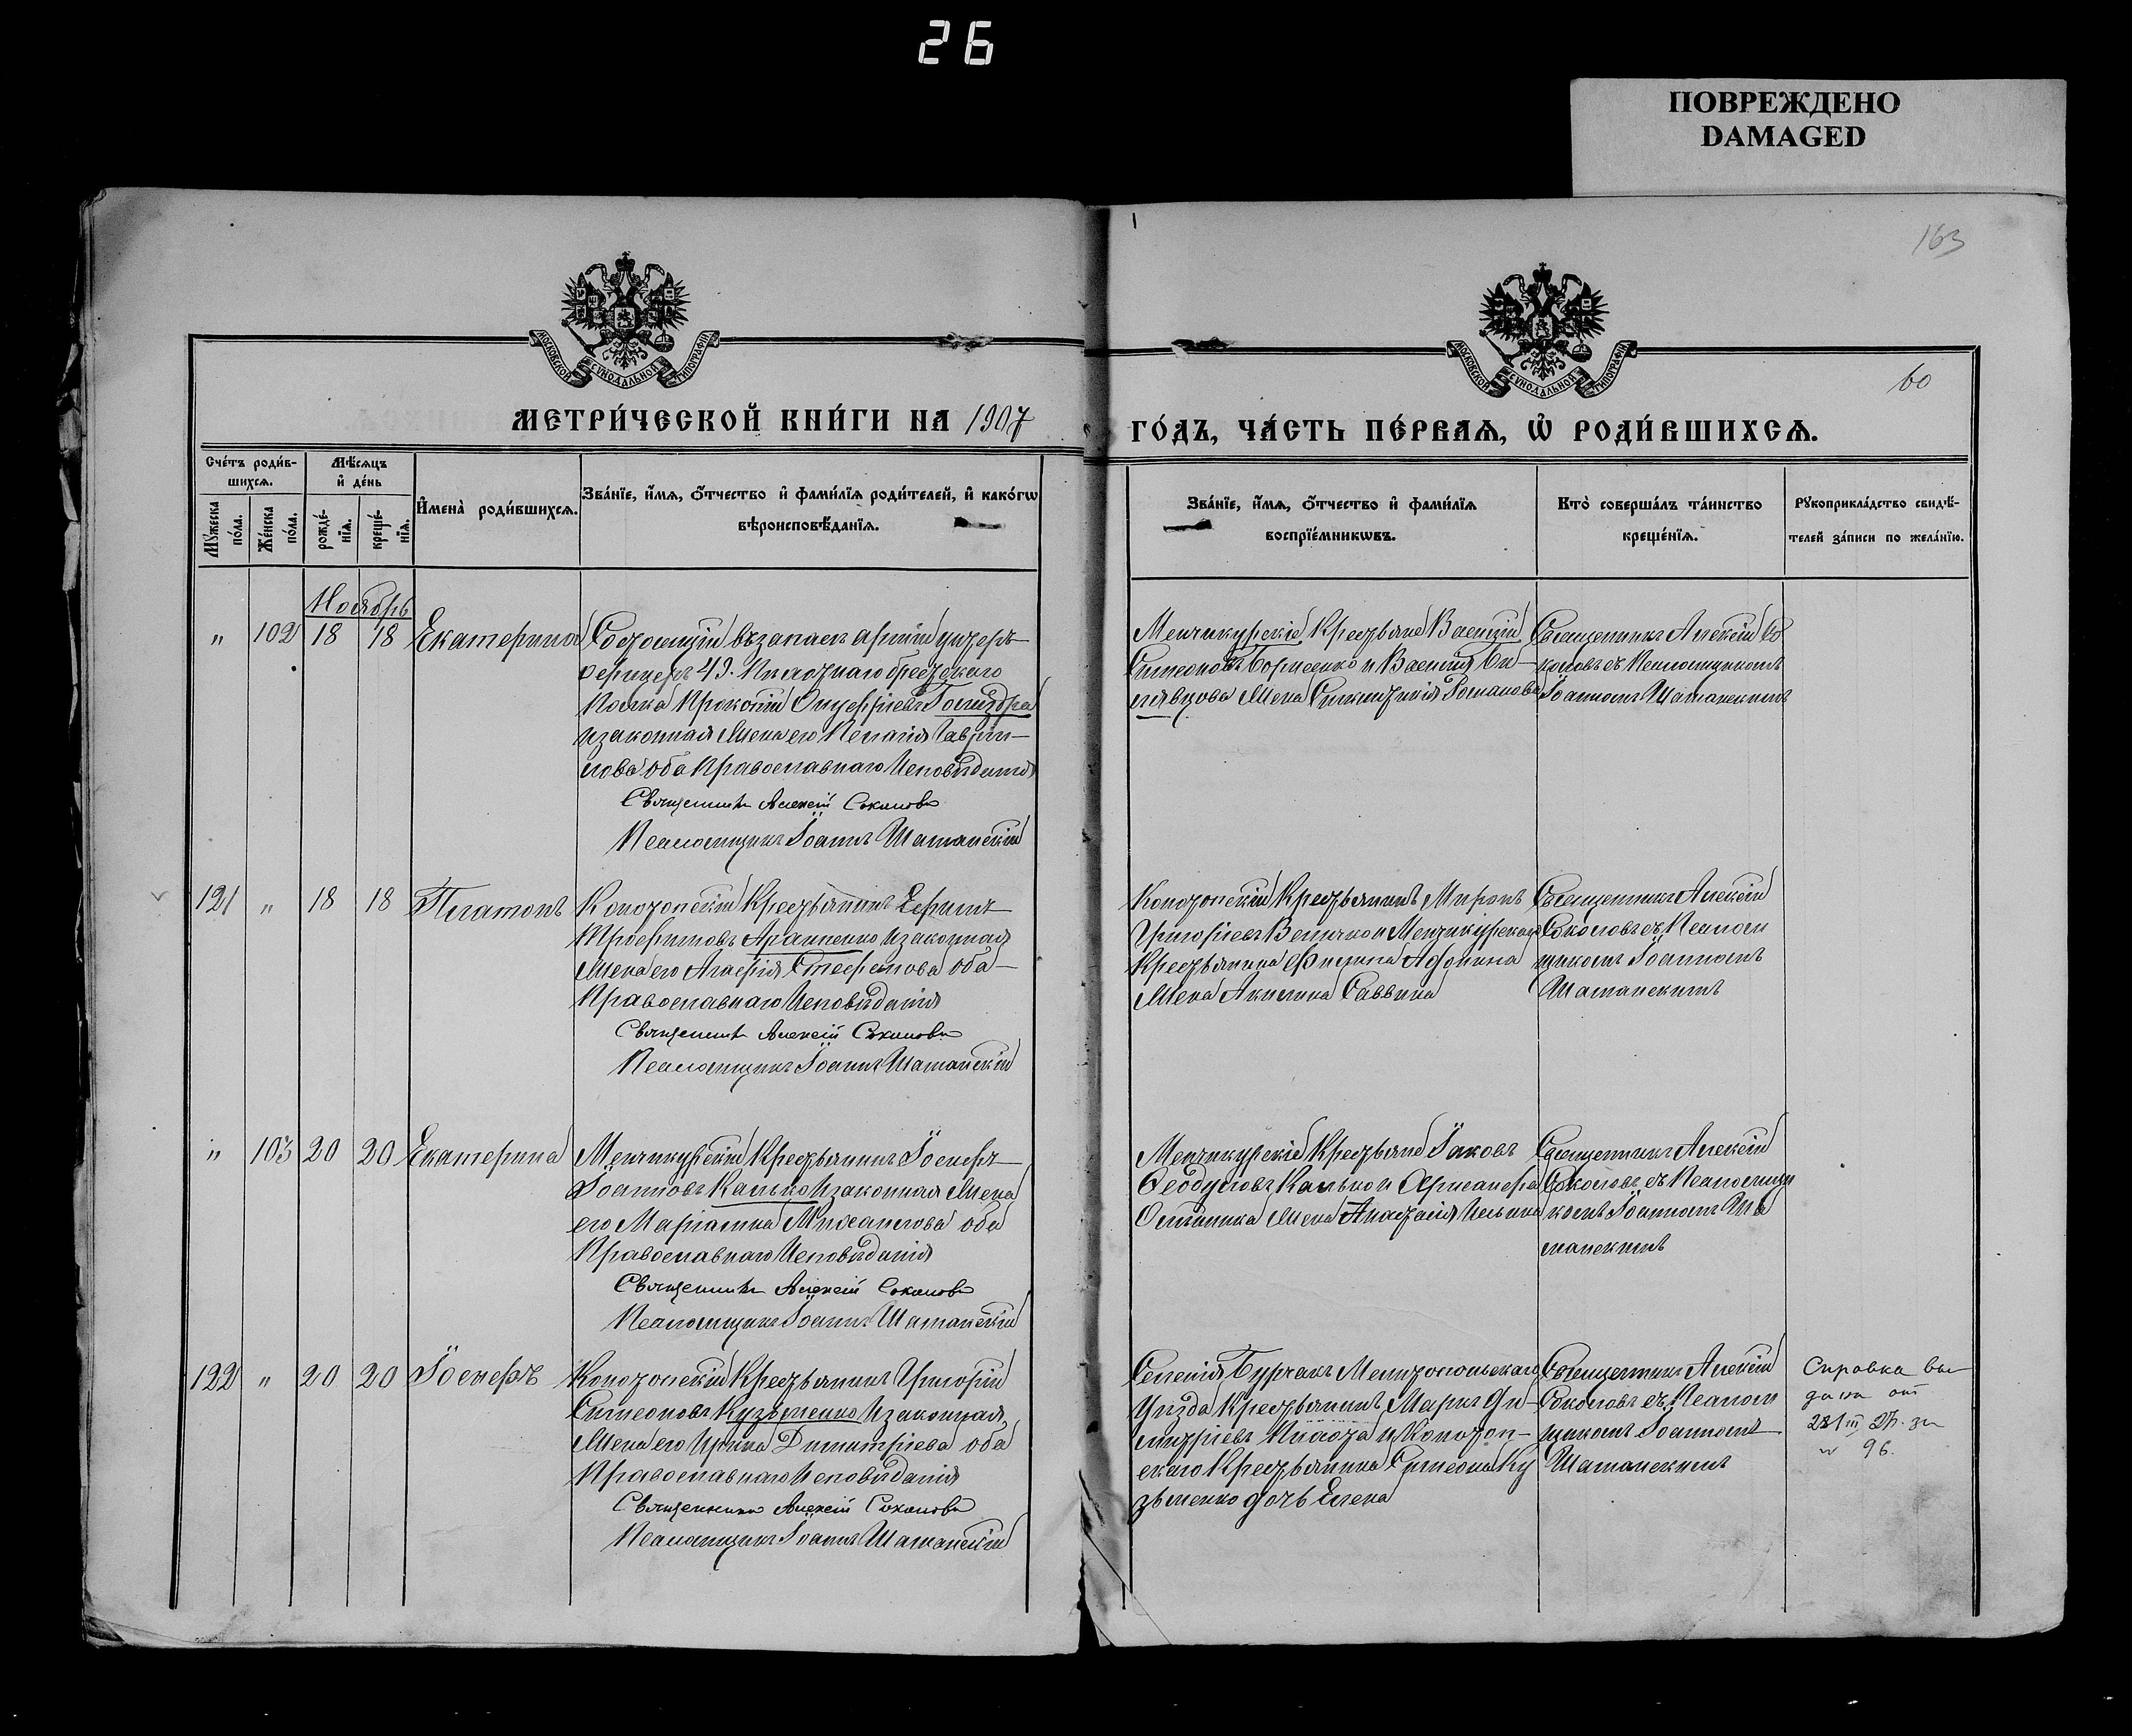 26
ПОВРЕЖДЕНО
DAMAGED
163
МОСКОВСКОЙ СѴНОДАЛЬНОЙ ТИПОГРАФІИ
МОСКОВСКОЙ СѴНОДАЛЬНОЙ ТИПОГРАФІИ
60
МЕТРИ́ЧЕСКОЙ КНИ́ГИ НА 1907
ГО́ДЪ, ЧА́СТЬ ПЕ́РВАѦ, Ѡ҆ РОДИ́ВШИХСѦ.
Сче́тъ роди́в-
шихсѧ.
Мѣ́сѧцъ
и҆ де́нь
Мꙋ́жеска
по́ла.
Же́нска
по́ла.
рожде́-
нїѧ.
креще́-
нїѧ.
И҆мена̀ роди́вшихсѧ.
Зва́нїе, и҆́мѧ, ѻ҆́тчество и҆ фами́лїѧ роди́телей, и҆ како́гѡ
вѣроисповѣ́данїѧ.
Зва́нїе, и҆́мѧ, ѻ҆́тчество и҆ фами́лїѧ
воспрїе́мникѡвъ.
Кто̀ соверша́лъ та́инство
креще́нїѧ.
Рꙋкоприкла́дство свидѣ́-
телей за́писи по жела́нїю.
Ноябрь
" 102 18 18 Екатерина
Состоящій въ запасѣ арміи унтеръ
офицеръ 49. Пѣхотнаго брестскаго
Полка Прокопій Онуфріевъ
и законная Жена его Пелагія Гаврии-
лова оба Православнаго Исповѣданія
Священникъ Алексій Соколовъ
Псаломщикъ Іоаннъ Шаманскій
Менчикурскіе Крестьяне Василій
Симеоновъ Борисенко и Василія
Жена Романова
Священникъ Алексій Со
коловъ съ Псаломщикомъ
Іоанномъ Шаманскимъ
121 " 18 18 Платонъ
Копотопскій Крестьянинъ Ефимъ
Трофимовъ и законная
Жена его Агафія Стефанова оба
Православнаго Исповѣданія
Священникъ Алексій Соколовъ
Псаломщикъ Іоаннъ Шаманскій
Копотопскій Крестьянинъ Миронъ
Григоріевъ Величко и Менчикурскаго
Крестьянина Филипа Афонина
Жена Акилина Саввина
Священникъ Алексій
Соколовъ съ Псалом
щикомъ Іоанномъ
Шаманскимъ
" 103 20 20 Екатерина
Менчикурскій Крестьянинъ Іосифъ
Іоанновъ Калько и законная Жена
его Маріанна Михаилова оба
Православнаго Исповѣданія
Священникъ Алексій Соколовъ
Псаломщикъ Іоаннъ Шаманскій
Менчикурскіе Крестьяне Іаковъ
Феодуловъ Калько и
Жена Анастасія Ильина
Священникъ Алексій
Соколовъ съ Псаломщи
комъ Іоанномъ Ша
манскимъ
122 " 20 20 Іосифъ
Копотопскій Крестьянинъ Григорій
Симеоновъ Кузьменко и законная
Жена его Ирина Димитріева оба
Православнаго Исповѣданія
Священникъ Алексій Соколовъ
Псаломщикъ Іоаннъ Шаманскій
Селенія Бурчакъ Мелитопольскаго
Уѣзда Крестьянинъ Маркъ Ди-
митріевъ и Копотоп-
скаго Крестьянина Симеона Ку
зьменко дочь Елена
Священникъ Алексій
Соколовъ съ Псалом
щикомъ Іоанномъ
Шаманскимъ
Справка вы
дана от
27. за
№ 96.